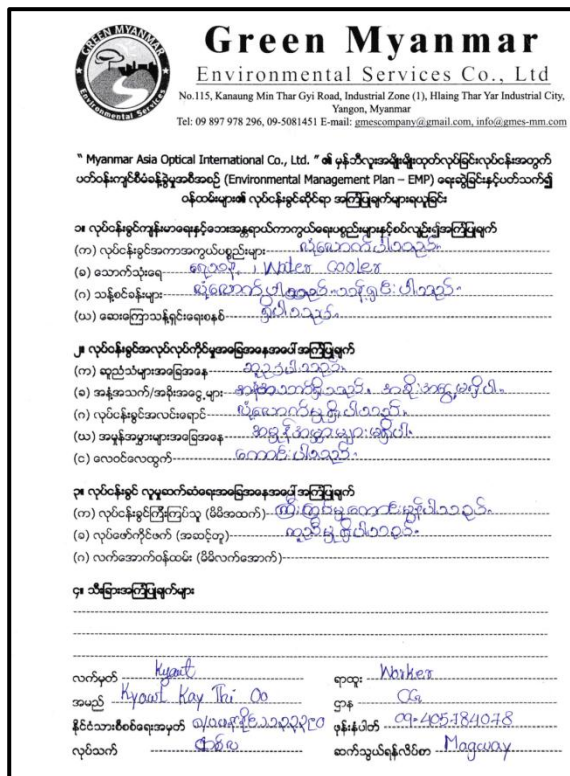 GREEN MYANMAR
Environmental Services
Green Myanmar
Environmental Services Co., Ltd
No.115, Kanaung Min Thar Gyi Road, Industrial Zone (1), Hlaing Thar Yar Industrial City,
Yangon, Myanmar
Tel: 09 897 978 296, 09-5081451 E-mail: gmescompany@gmail.com, info@gmes-mm.com
" Myanmar Asia Optical International Co., Ltd. " ၏ မှန်ဘီလူးအမျိုးမျိုးထုတ်လုပ်ခြင်းလုပ်ငန်းအတွက်
ပတ်ဝန်းကျင်စီမံခန့်ခွဲမှုအစီအစဉ် (Environmental Management Plan – EMP) ရေးဆွဲခြင်းနှင့်ပတ်သက်၍
ဝန်ထမ်းများ၏ လုပ်ငန်းခွင်ဆိုင်ရာ အကြံပြုချက်များရယူခြင်း
၁။ လုပ်ငန်းခွင်ကျန်းမာရေးနှင့်ဘေးအန္တရာယ်ကာကွယ်ရေးပစ္စည်းများနှင့်စပ်လျဉ်း၍အကြံပြုချက်
(က) လုပ်ငန်းခွင်အကာအကွယ်ပစ္စည်းများ လုံလောက်ပါသည်။
(ခ) သောက်သုံးရေ ရေသန့်, Water cooler
(ဂ) သန့်စင်ခန်းများ လုံလောက်ပါသည်။ သန့်ရှင်းပါသည်။
(ဃ) ဆေးကြောသန့်ရှင်းရေးစနစ် ရှိပါသည်။
၂။ လုပ်ငန်းခွင်အလုပ်လုပ်ကိုင်မှုအခြေအနေအပေါ် အကြံပြုချက်
(က) ဆူညံသံများအခြေအနေ ဆူညံပါသည်။
(ခ) အနံ့အသက်/အခိုးအငွေ့များ အနံ့အသက်ရှိသည်။ အခိုးအငွေ့မရှိပါ။
(ဂ) လုပ်ငန်းခွင်အလင်းရောင် လုံလောက်မှုရှိပါသည်။
(ဃ) အမှုန်အမွှားများအခြေအနေ အမှုန်အမွှားများမရှိပါ။
(င) လေဝင်လေထွက် ကောင်းပါသည်။
၃။ လုပ်ငန်းခွင် လူမှုဆက်ဆံရေးအခြေအနေအပေါ် အကြံပြုချက်
(က) လုပ်ငန်းခွင်ကြီးကြပ်သူ (မိမိအထက်) ကြီးကြပ်မှုကောင်းမွန်ပါသည်။
(ခ) လုပ်ဖော်ကိုင်ဖက် (အဆင့်တူ) ကူညီမှုရှိပါသည်။
(ဂ) လက်အောက်ဝန်ထမ်း (မိမိလက်အောက်)
၄။ သီးခြားအကြံပြုချက်များ
လက်မှတ် Kyawt ရာထူး Worker
အမည် Kyawt Kay Thi Oo ဌာန CG
နိုင်ငံသားစိစစ်ရေးအမှတ် ဖုန်းနံပါတ် 09-405784078
လုပ်သက် တစ်လ ဆက်သွယ်ရန်လိပ်စာ Magway